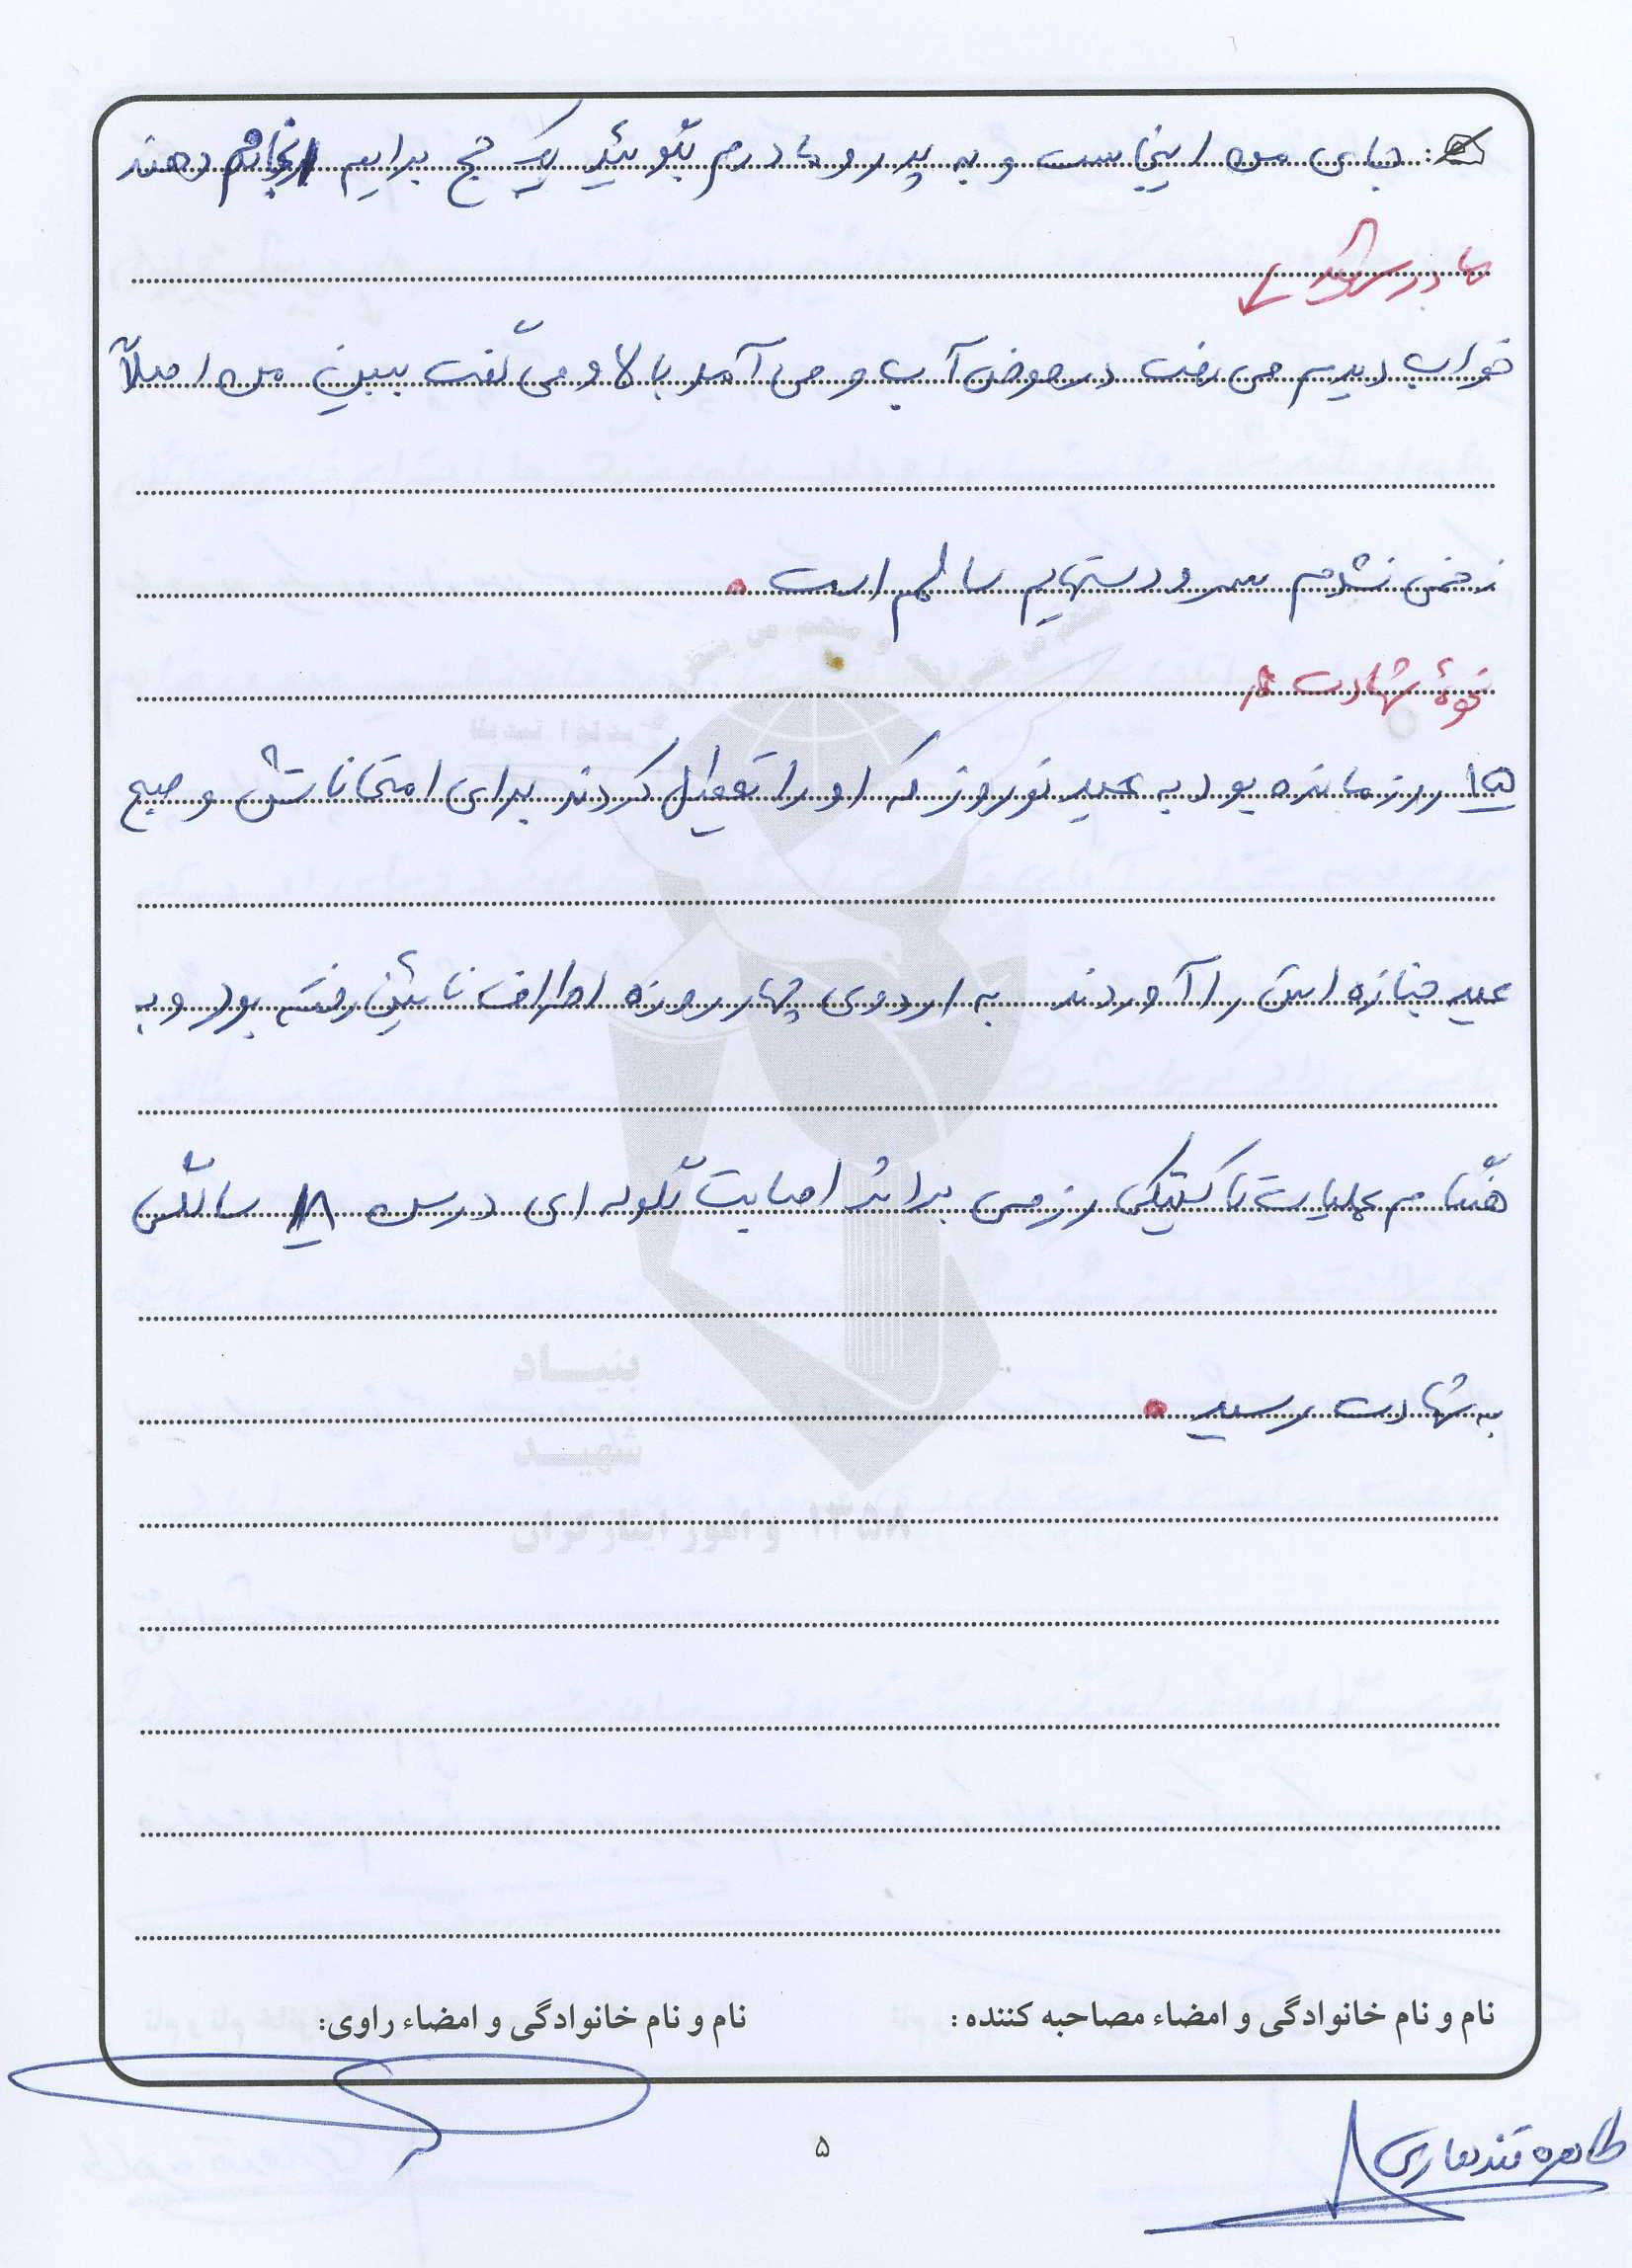 جای من اینجاست و به پدر و مادرم بگوئید یک حج برایم انجام دهند
مادر شهید
خواب دیدم می رفت در حوض آب و می آمد بالا و می گفت ببین من اصلاً
زخمی نشدم سر و دستهایم سالم است.
نحوۀ شهادت:
۱۵ روز مانده بود به عید نوروز که او را تعطیل کردند برای امتحاناتش و صبح
عید جنازه اش را آوردند به اردوی چهار روزه اطراف نائین رفته بود و به
هنگام عملیات تاکتیکی رزمی بر اثر اصابت گلوله ای در سن ۱۸ سالگی
به شهادت رسید.
بنیاد
شهید
و امور ایثارگران ۱۳۵۸
نام و نام خانوادگی و امضاء مصاحبه کننده: نام و نام خانوادگی و امضاء راوی:
طاهره قندهاری
۵